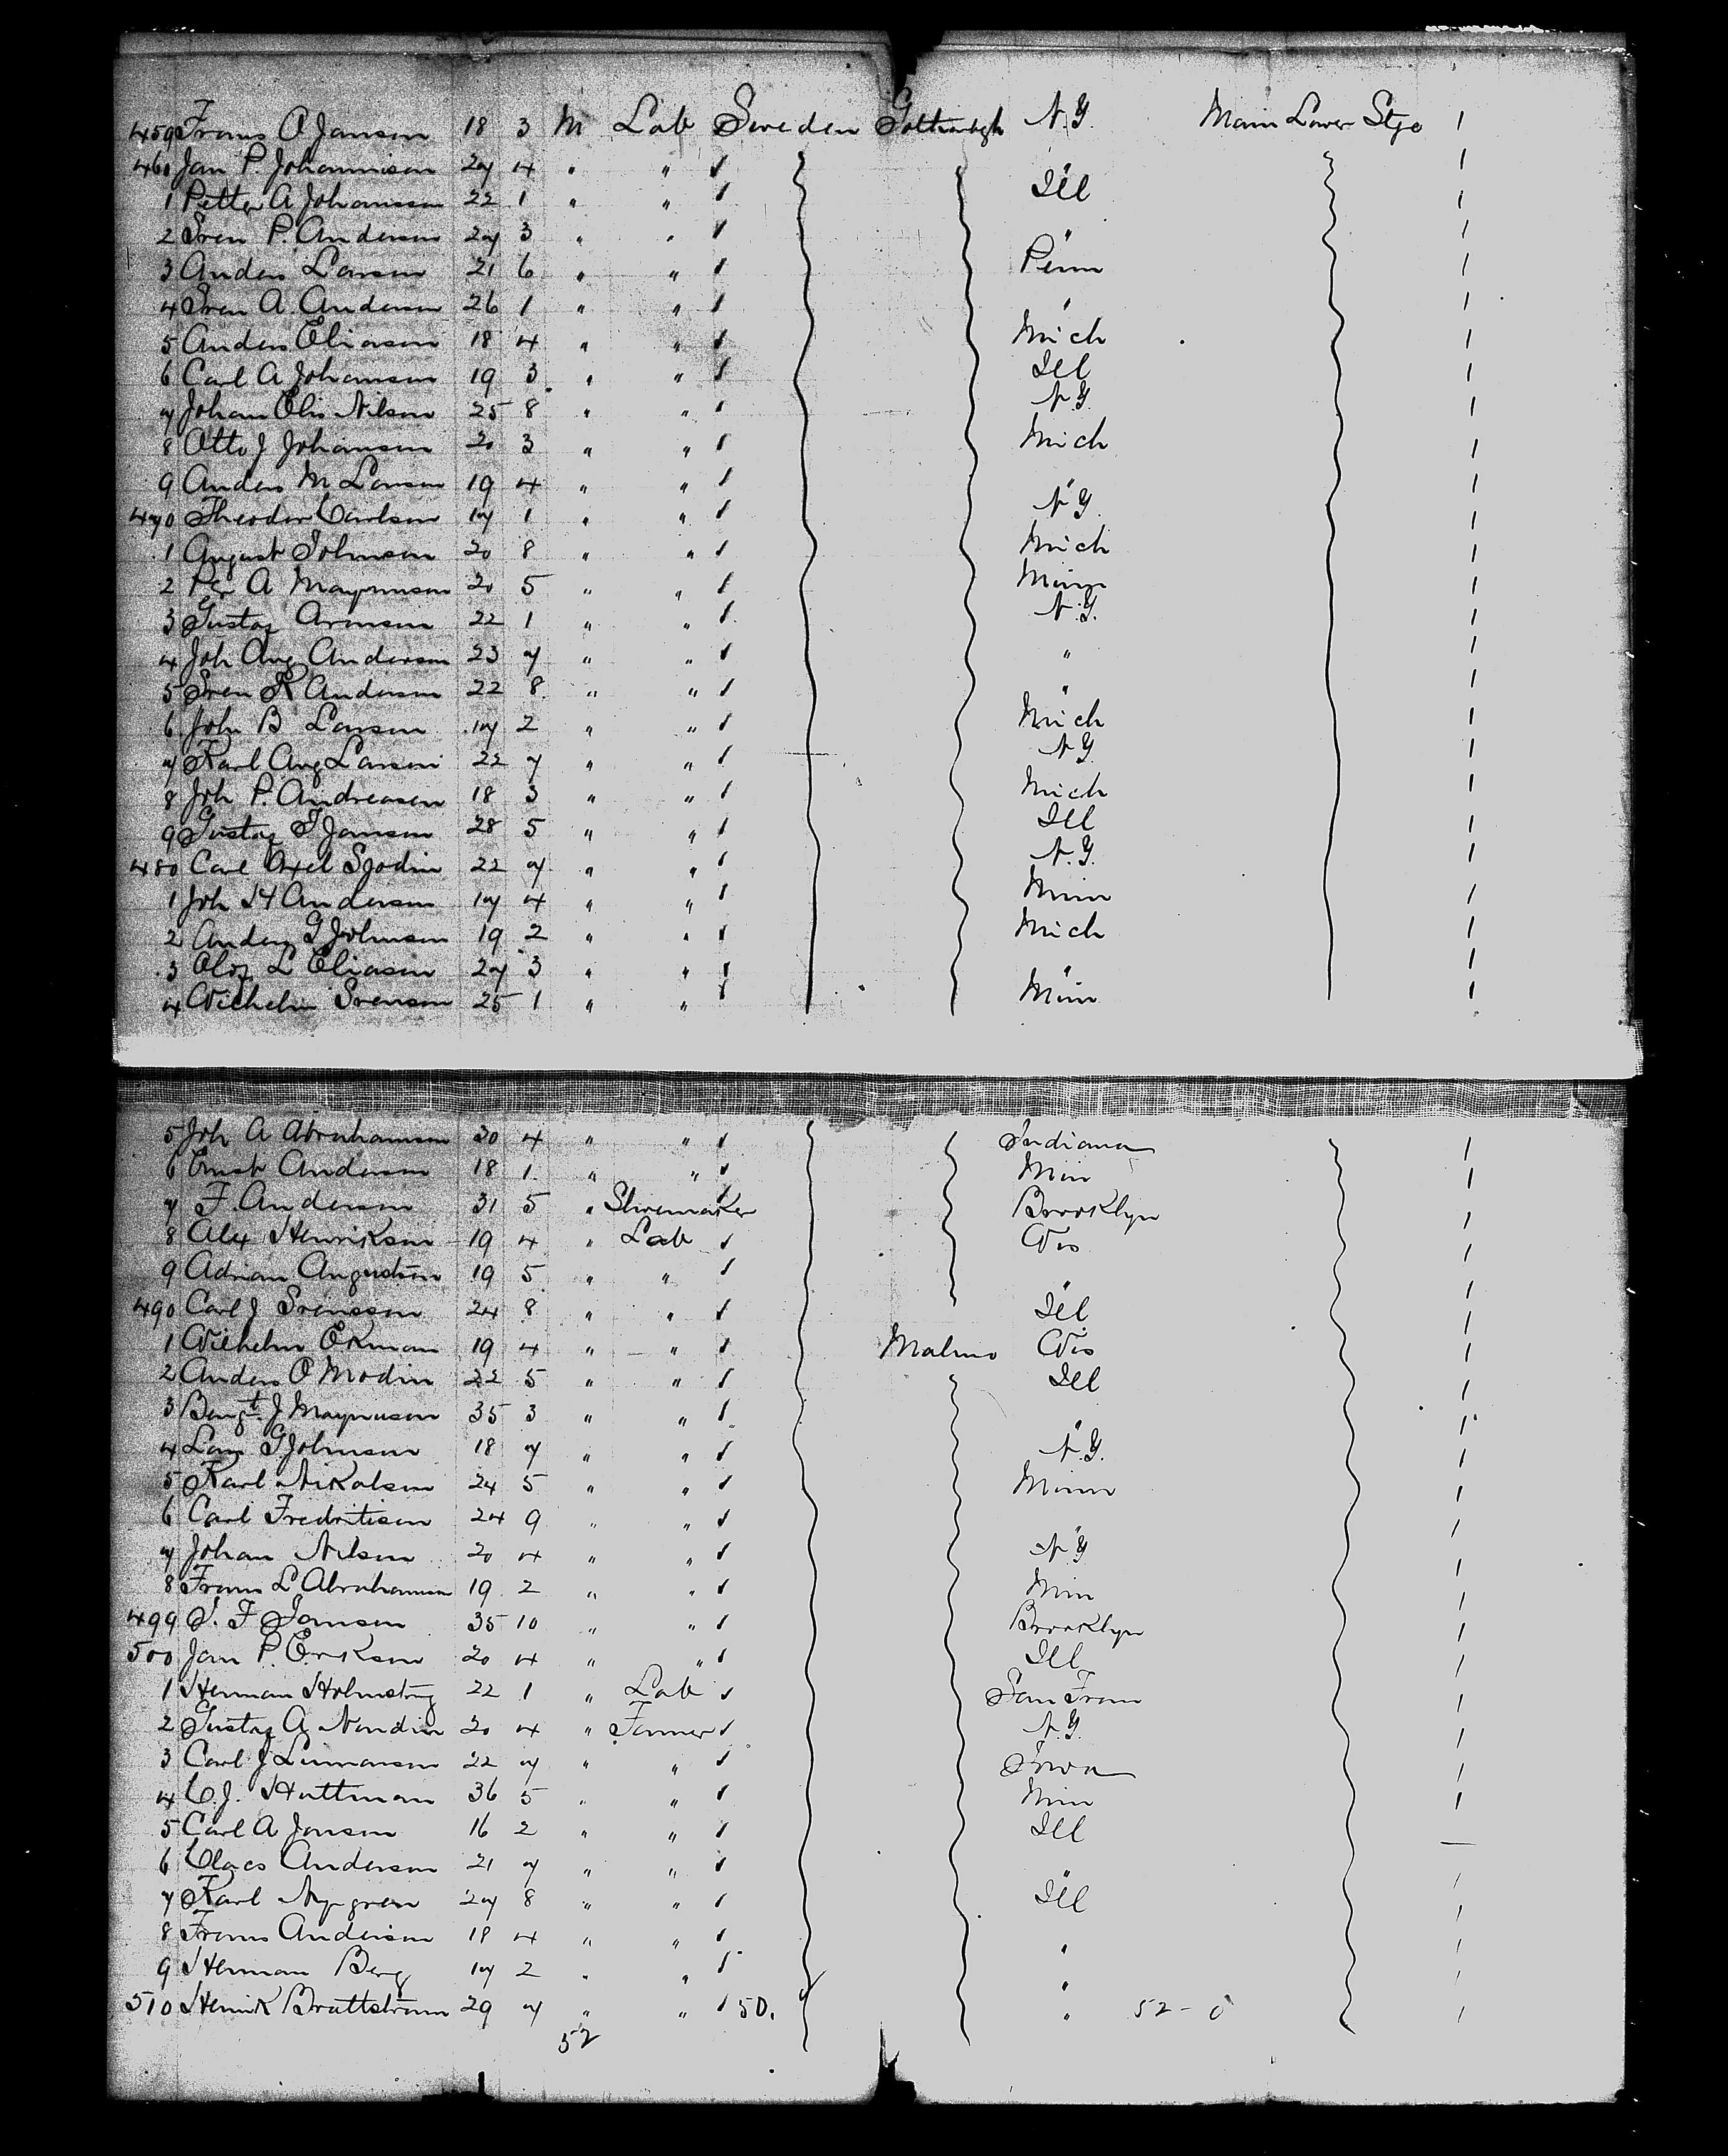 459 Frans A Janson 18 3 M Lab Sweden Gothenbgh N.Y. Main Lower Stge 1
460 Jan P. Johannison 27 4 " " " 1
1 Petter A Johanson 22 1 " " Ill 1
2 Sven P. Anderson 27 3 " " " 1
3 Anders Larson 21 6 " " Penn 1
4 Sven A. Anderson 26 1 " " " 1
5 Anders Eliason 18 4 " " Mich 1
6 Carl A Johanson 19 3 " " Ill 1
7 Johan Elis Nilson 25 8 " " N.Y. 1
8 Otto J Johanson 20 3 " " Mich 1
9 Anders M Larson 19 4 " " " 1
470 Theodor Carlson 17 1 " " N.Y. 1
1 August Johnson 20 8 " " Mich 1
2 Per A Magnusson 20 5 " " Minn 1
3 Gustaf Aronson 22 1 " " N.Y. 1
4 Joh Aug Anderson 23 7 " " " 1
5 Sven K Anderson 22 8 " " " 1
6 John B Larson 17 2 " " Mich 1
7 Karl Aug Larson 22 7 " " N.Y. 1
8 Joh P. Andreasen 18 3 " " Mich 1
9 Gustaf F Janson 28 5 " " Ill 1
480 Carl Axel Sjodin 22 7 " " N.Y. 1
1 Joh H Anderson 17 4 " " Minn 1
2 Anders G Johnson 19 2 " " Mich 1
3 Olof L Eliason 27 3 " " " 1
4 Wilhelm Svenson 25 1 " " Minn 1
5 Joh A Abrahamson 30 4 " " Indiana 1
6 Ernst Anderson 18 1 " " Min 1
7 F. Anderson 31 5 " Shoemaker Brooklyn 1
8 Alex Henrikson 19 4 " Lab Wis 1
9 Adrian Angustin 19 5 " " " 1
490 Carl J Svensson 24 8 " " Ill 1
1 Wilhelm Ekman 19 4 " " Malmo Wis 1
2 Anders P Modin 22 5 " " Ill 1
3 Bengt J Magnuson 35 3 " " " 1
4 Lars G Johnson 18 7 " " N.Y. 1
5 Karl Nikolson 24 5 " " Minn 1
6 Carl Fredritison 24 9 " " " 1
7 Johan Nilson 20 4 " " N.Y 1
8 Frans L Abrahamson 19 2 " " Min 1
499 S. F Janson 35 10 " " Brooklyn 1
500 Jan P. Erikson 20 4 " " Ill 1
1 Herman Holmstrg 22 1 " Lab San Fran 1
2 Gustaf A. Nordin 20 4 " Farmer N.Y. 1
3 Carl J Linnarson 22 7 " " Iowa 1
4 C.J. Huttman 36 5 " " Min 1
5 Carl A Jonson 16 2 " " Ill —
6 Claes Anderson 21 7 " " " 1
7 Karl Nygren 27 8 " " Ill 1
8 Frans Anderson 18 4 " " " 1
9 Herman Berg 17 2 " " " 1
510 Henrik Brattstrom 29 7 " " 50. " 52 - 0 1
52